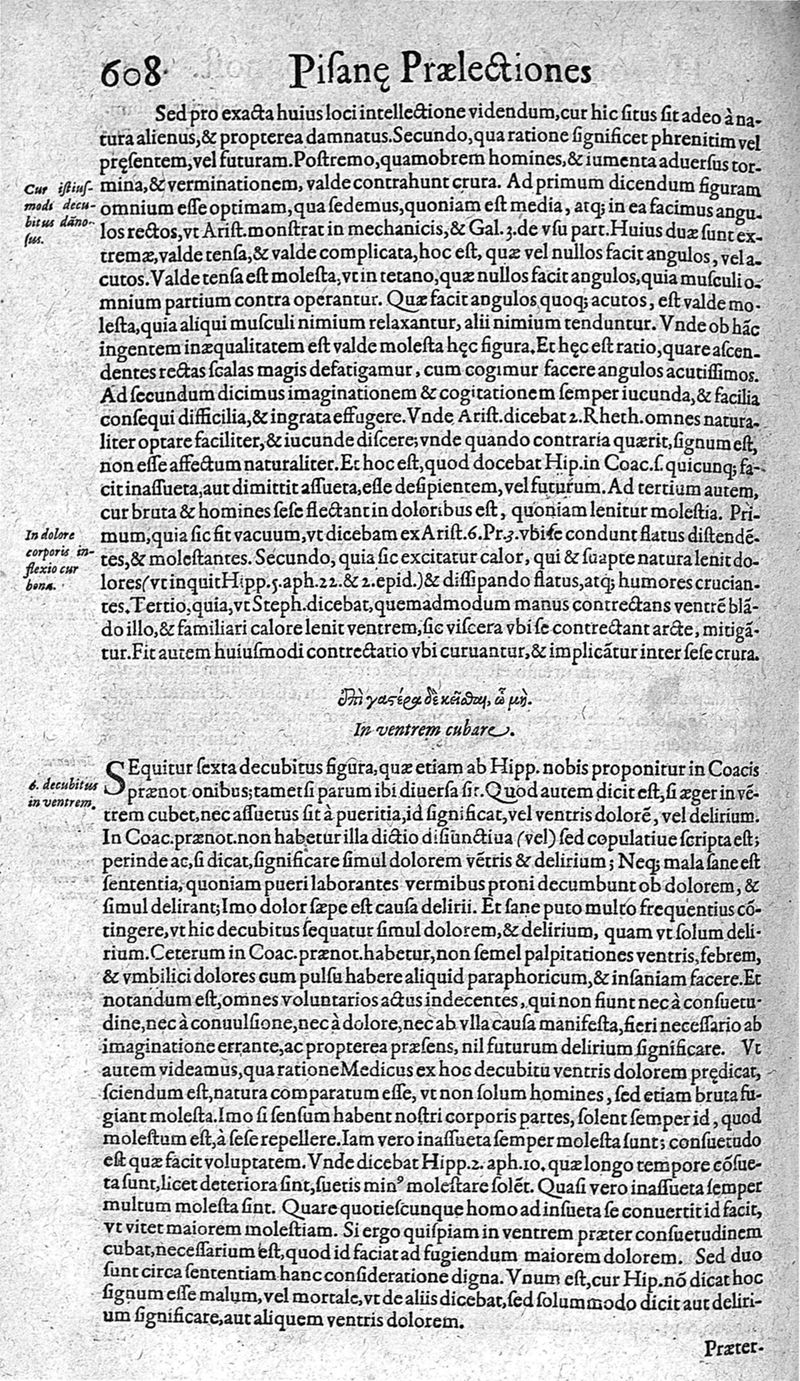 608
Piſanę Prælectiones
Sed pro exacta huius loci intellectione videndum, cur hic ſitus ſit adeo à na-
tura alienus, & propterea damnatus. Secundo, qua ratione ſignificet phrenitim vel
pręſentem, vel futuram. Poſtremo, quamobrem homines, & iumenta aduerſus tor-
mina, & verminationem, valde contrahunt crura. Ad primum dicendum figuram
omnium eſſe optimam, qua ſedemus, quoniam eſt media, atq; in ea facimus angu-
los rectos, vt Ariſt. monſtrat in mechanicis, & Gal. 3. de vſu part. Huius duæ ſunt ex-
tremæ, valde tenſa, & valde complicata, hoc eſt, quæ vel nullos facit angulos, vel a-
cutos. Valde tenſa eſt moleſta, vt in tetano, quæ nullos facit angulos, quia muſculi o-
mnium partium contra operantur. Quæ facit angulos quoq; acutos, eſt valde mo-
leſta, quia aliqui muſculi nimium relaxantur, alii nimium tenduntur. Vnde ob hãc
ingentem inæqualitatem eſt valde moleſta hęc figura. Et hęc eſt ratio, quare aſcen-
dentes rectas ſcalas magis defatigamur, cum cogimur facere angulos acutiſſimos.
Ad ſecundum dicimus imaginationem & cogitationem ſemper iucunda, & facilia
conſequi difficilia, & ingrata effugere. Vnde Ariſt. dicebat 2. Rheth. omnes natura-
liter optare faciliter, & iucunde diſcere; vnde quando contraria quærit, ſignum eſt,
non eſſe affectum naturaliter. Et hoc eſt, quod docebat Hip. in Coac. ſ. quicunq; fa-
cit inaſſueta, aut dimittit aſſueta, eſſe deſipientem, vel futurum. Ad tertium autem,
cur bruta & homines ſeſe flectant in doloribus eſt, quoniam lenitur moleſtia. Pri-
mum, quia ſic fit vacuum, vt dicebam ex Ariſt. 6. Pr. 3. vbi ſe condunt flatus diſtendẽ-
tes, & moleſtantes. Secundo, quia ſic excitatur calor, qui & ſuapte natura lenit do-
lores (vt inquit Hipp. 5. aph. 22. & 2. epid.) & diſſipando flatus, atq; humores crucian-
tes. Tertio, quia, vt Steph. dicebat, quemadmodum manus contrectans ventrẽ blã-
do illo, & familiari calore lenit ventrem, ſic viſcera vbi ſe contrectant arcte, mitigã-
tur. Fit autem huiuſmodi contrectatio vbi curuantur, & implicãtur inter ſeſe crura.
Cur iſtiuſ-
modi decu-
bitus dãno-
ſus.
In dolore
corporis in-
flexio cur
bona.
ἐπὶ γαστέρα δὲ κεῖσθαι, ᾧ μὴ.
In ventrem cubare.
SEquitur ſexta decubitus figura, quæ etiam ab Hipp. nobis proponitur in Coacis
prænot onibus; tametſi parum ibi diuerſa ſit. Quod autem dicit eſt, ſi æger in vẽ-
trem cubet, nec aſſuetus ſit à pueritia, id ſignificat, vel ventris dolorẽ, vel delirium.
In Coac. prænot. non habetur illa dictio diſiunctiua (vel) ſed copulatiue ſcripta eſt;
perinde ac, ſi dicat, ſignificare ſimul dolorem vẽtris & delirium; Neq; mala ſane eſt
ſententia, quoniam pueri laborantes vermibus proni decumbunt ob dolorem, &
ſimul delirant; Imo dolor ſæpe eſt cauſa delirii. Et ſane puto multo frequentius cõ-
tingere, vt hic decubitus ſequatur ſimul dolorem, & delirium, quam vt ſolum deli-
rium. Ceterum in Coac. prænot. habetur, non ſemel palpitationes ventris, febrem,
& vmbilici dolores cum pulſu habere aliquid paraphoricum, & inſaniam facere. Et
notandum eſt, omnes voluntarios actus indecentes, qui non fiunt nec à conſuetu-
dine, nec à conuulſione, nec à dolore, nec ab vlla cauſa manifeſta, fieri neceſſario ab
imaginatione errante, ac propterea præſens, nil futurum delirium ſignificare. Vt
autem videamus, qua ratione Medicus ex hoc decubitu ventris dolorem prędicat,
ſciendum eſt, natura comparatum eſſe, vt non ſolum homines, ſed etiam bruta fu-
giant moleſta. Imo ſi ſenſum habent noſtri corporis partes, ſolent ſemper id, quod
moleſtum eſt, à ſeſe repellere. Iam vero inaſſueta ſemper moleſta ſunt; conſuetudo
eſt quæ facit voluptatem. Vnde dicebat Hipp. 2. aph. 10. quæ longo tempore cõſue-
ta ſunt, licet deteriora ſint, ſuetis minꝰ moleſtare ſolẽt. Quaſi vero inaſſueta ſemper
multum moleſta ſint. Quare quotieſcunque homo ad inſueta ſe conuertit id facit,
vt vitet maiorem moleſtiam. Si ergo quiſpiam in ventrem præter conſuetudinem
cubat, neceſſarium eſt, quod id faciat ad fugiendum maiorem dolorem. Sed duo
ſunt circa ſententiam hanc conſideratione digna. Vnum eſt, cur Hip. nõ dicat hoc
ſignum eſſe malum, vel mortale, vt de aliis dicebat, ſed ſolummodo dicit aut deliri-
um ſignificare, aut aliquem ventris dolorem.
6. decubitus
in ventrem.
Præter-